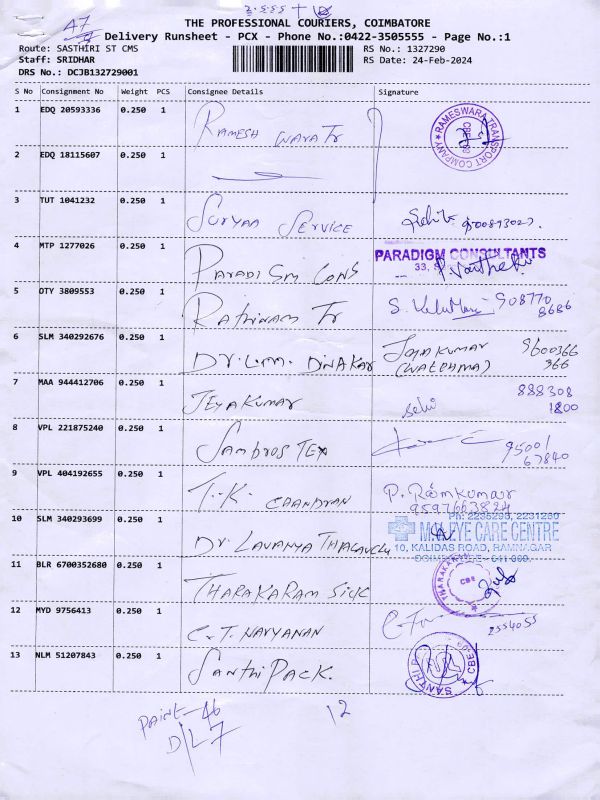 2-5-5-5 + 10
THE PROFESSIONAL COURIERS, COIMBATORE
A7 Delivery Runsheet - PCX - Phone No.:0422-3505555 - Page No.:1
Route: SASTHIRI ST CMS RS No.: 1327290
Staff: SRIDHAR RS Date: 24-Feb-2024
DRS No.: DCJB132729001
S No Consignment No Weight PCS Consignee Details Signature
1 EDQ 20593336 0.250 1 RAMESH WARA Tr RAMESWARA TRANSPORT COMPANY
2 EDQ 18115607 0.250 1
3 TUT 1041232 0.250 1 SURYAA SERVICE
4 MTP 1277026 0.250 1 PARADISM CONS PARADIGM CONSULTANTS
33,
5 OTY 3809553 0.250 1 Rathinam Tr 908770
8686
6 SLM 340292676 0.250 1 Dr. L.M. DINAKAR JAYAKUMAR 9600366
(WATCHMAN) 366
7 MAA 944412706 0.250 1 JEYAKUMAR selvi 888308
1800
8 VPL 221875240 0.250 1 Sambros Tex 95001
67840
9 VPL 404192655 0.250 1 T.K. CHANDRAN P. Ramkumar
9597663824
Ph: 2236298, 2231280
10 SLM 340293699 0.250 1 Dr. LAVANYA EYE CARE CENTRE
10, KALIDAS ROAD, RAMNAGAR
11 BLR 6700352680 0.250 1 THARAKARAM SILK THARAKARAM CBE
12 MYD 9756413 0.250 1 C.T. NARYANAN 2554055
13 NLM 51207843 0.250 1 SANTHI PACK. SANTHI P CBE
PAINE-46 12
D/L 7